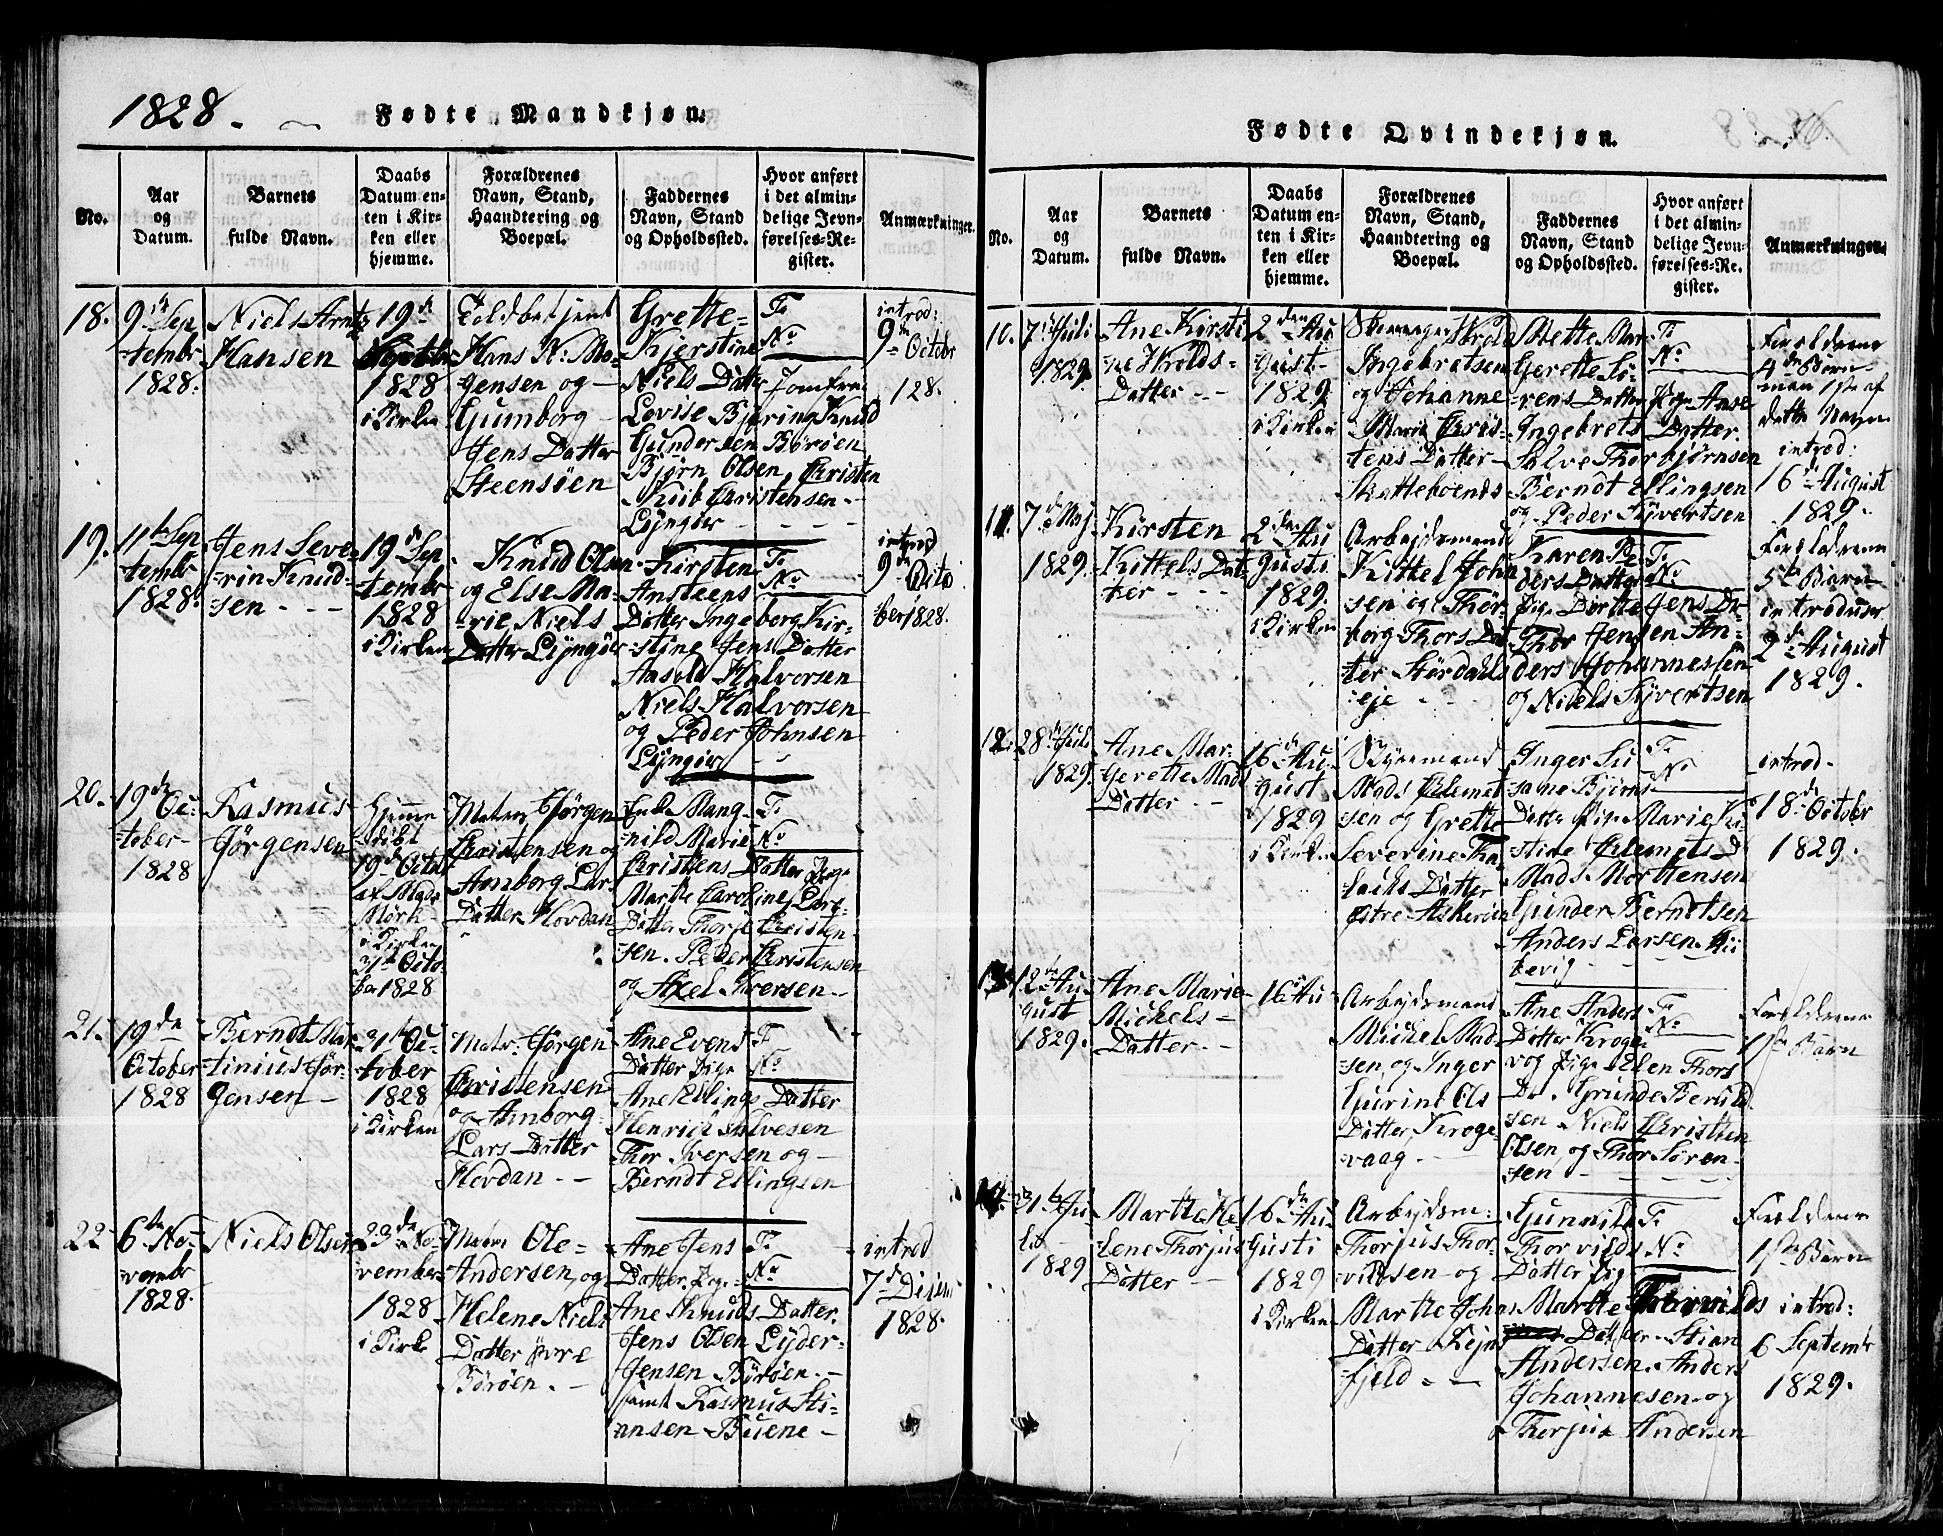 1828.
Fødte Mandkjøn.
No.
Aar
og
Datum.
Barnets
fulde Navn.
Daabs
Datum en-
ten i Kir-
ken eller
hjemme.
Forældrenes
Navn, Stand,
Haandtering og
Boepæl.
Faddernes
Navn, Stand
og Opholdssted.
Hvor anført
i det almin-
delige Jevn-
førelses-Re-
gister.
Anmærkninger.
18.
9de Sep
tembr
1828.
Niels Arntz
Hansen
19de
1828
i Kirken
Toldbetjent
Hans N: Mo-
gensen og
Gumborg
Jens Datter
Steensöen
Grette
Kjerstine
Niels Datter Jomfru
Lovise Bjering Knud
Gundersen Böröen
Björn Olsen, Christen
Kiib Christensen
Lÿngöer
F:
No
introd:
9de Octobr
128.
19.
11te Sep
tembr
1828.
Jens Seve-
rin Knud-
sen
19de Sep
tembr
1828
i Kirken
Knud Olsen
og Else Ma-
rie Niels
Datter Lÿngör
Kirsten
Ansteens
Datter Ingeborg Kir-
stine Jens Datter
Aasold Halvorsen
Niels Halvorsen
og Peder Johnsen
Lÿngöer
F:
No
introd
9de Octo
ber 1828.
20.
19de Oc-
tober
1828
Rasmus
Jörgensen
Hjemme
döbt
19de Octob
af Mads
Mörk
i Kirken
31te Octo
ber 1828
Matros Jörgen
Christensen og
Amborg Lars
Datter Hovdan
Enke Mang-
nild Marie
Christens Datter Pige
Marthe Caroline Lars
Datter Thorje Christen-
sen. Peder Christensen
og Axel Iversen
F:
No
21.
19de
October
1828
Berndt Mar
tinius Jör-
gensen
31te Oc-
tober
1828
i Kirken
Matr: Jörgen
Christensen
og Amborg
Lars Datter
Hovdan
Ane Evens
Datter Pige
Ane Ellings Datter
Henrich Salvesen
Thor Iversen og
Berndt Ellingsen
F:
No
22
6te No-
vembr
1828.
Niels Olsen
23de No
vember
1828
i Kirke
Matros Ole
Andersen og
Helene Niels
Datter övre
Böröen.
Ane Jens
Datter, Pige
Ane Knuds Datter.
Jens Olsen Lÿder
Jensen Böröen.
samt Rasmus Sti-
ansen Buene
F:
No
introd
7de Decem
1828.
Fødte Qvindekjøn.
76.
No.
Aar
og
Datum.
Barnets
fulde Navn.
Daabs
Datum en-
ten i Kir-
ken eller
hjemme.
Forældrenes
Navn, Stand,
Haandtering og
Boepæl.
Faddernes
Navn, Stand
og Opholdssted.
Hvor anført
i det almin-
delige Jevn-
førelses-Re-
gister.
Anmærkninger.
10.
7de Juli
1829
Ane Kirsti-
ne Wrolds
Datter
2den Au
gust
1829
i Kirken
Wrold
Ingebretsen
og Johanne
Marie Chris-
tens Datter
Skatteboends
Mette Mar
Gerette Sö-
rens Datter Pige Anse
Ingebrets Datter
Salve Thorbjörnsen
Berndt Ellingsen
og Peder Syvertsen
F:
No
Forældrene
4de Barn
men 1ste af
dette Navn
introd:
16de August
1829.
11.
7de Maj
1829.
Kirsten
Kittels Dat
ter
2den Au
gusti
1829
i Kirken
Arbejdsmand
Kittel John
sen og Thor-
borg Thors Dat
ter Stördahls
eje
Karen Pe
ders Datter
Pige Dorthe Jens Da-
Thor Jensen An-
ders Johannessen
og Niels Syvertsen
F:
No
Forældrene
5te Barn
introducer
2de August
1829.
12.
28de Juli
1829.
Ane Mar-
Gerette Mads
Datter
16de Au-
gust
1829
i Kirken
Mads Clemet
sen og Grette
Severine Tha
Datter
östre Askeröen
Inger Su
sane Björns
Datter Pige Marie Ki
stine Clemets D
Mads Mortensen
Gunder Berndtsen
Anders Larsen
F:
No
introd.
18de Octobr
1829.
13.
12te Au-
gust
1829.
Ane Marie
Michels
Datter
16de Au
Arbejdsmand
Michel Mad-
sen og Inger
Gurine Ols
Datter Kroge-
vaag
Ane Anders
Datter Kroge
vog Pige Elen Thors
D. Grunde Berulds
sen Niels Christian
Olsen og Thor Sören-
sen
F:
No
Forældrene
1ste Barn
14.
31te Ju
li
1829
Marthe He-
lene Thorjus
Datter
16de Au-
gusti
1829
i Kirken
Arbejdsm:
Thorjus Thor-
vildsen og
Marthe Johns
Datter Rejns
fjeld
Gunnild
Thorvilds
Datter Pig
Marthe Thorvilds
Datter Stian
Andersen. Anders
Johannesen og
Thorjus Andersen
F:
No
Forældrene
1ste Barn
introd:
6 Septembr
1829.